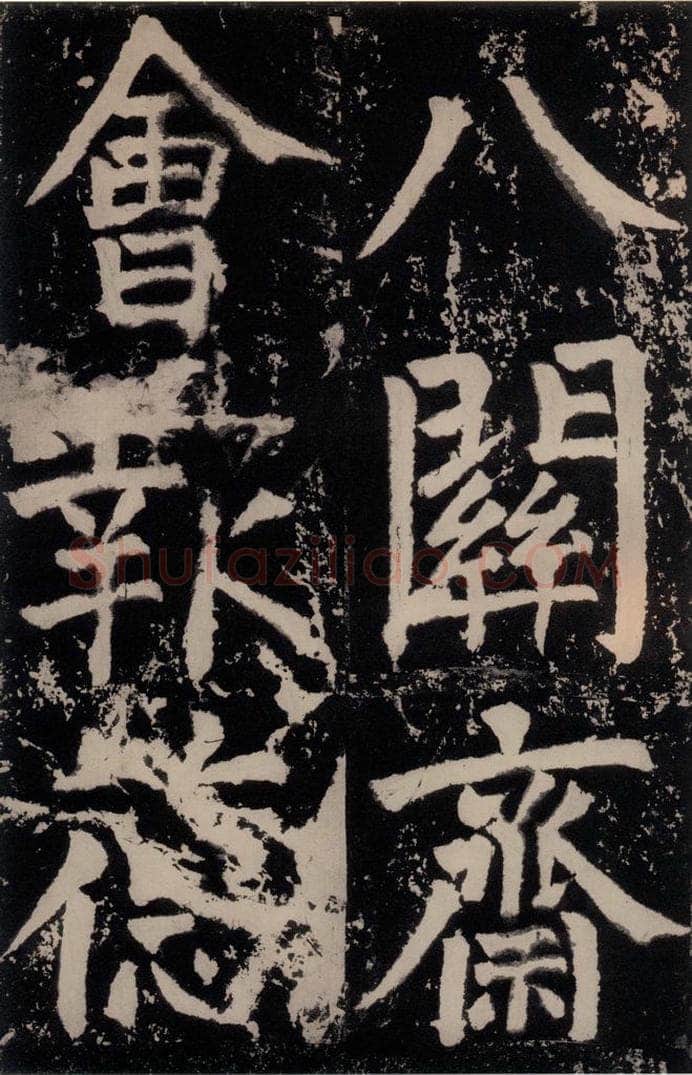 八關齋
會報德
Shufaziliao.COM